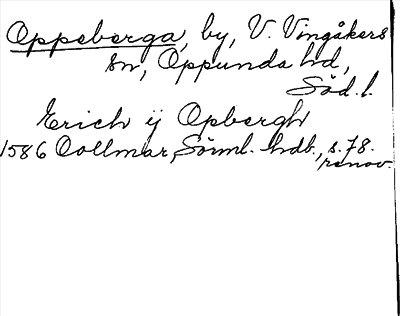 Oppeberga, by, V. Vingåkers
sn, Oppunda hd,
Söd. l.
Erich ij Opbergh
1586 Collmar, Sörml. hdb., s. 78.
renov.